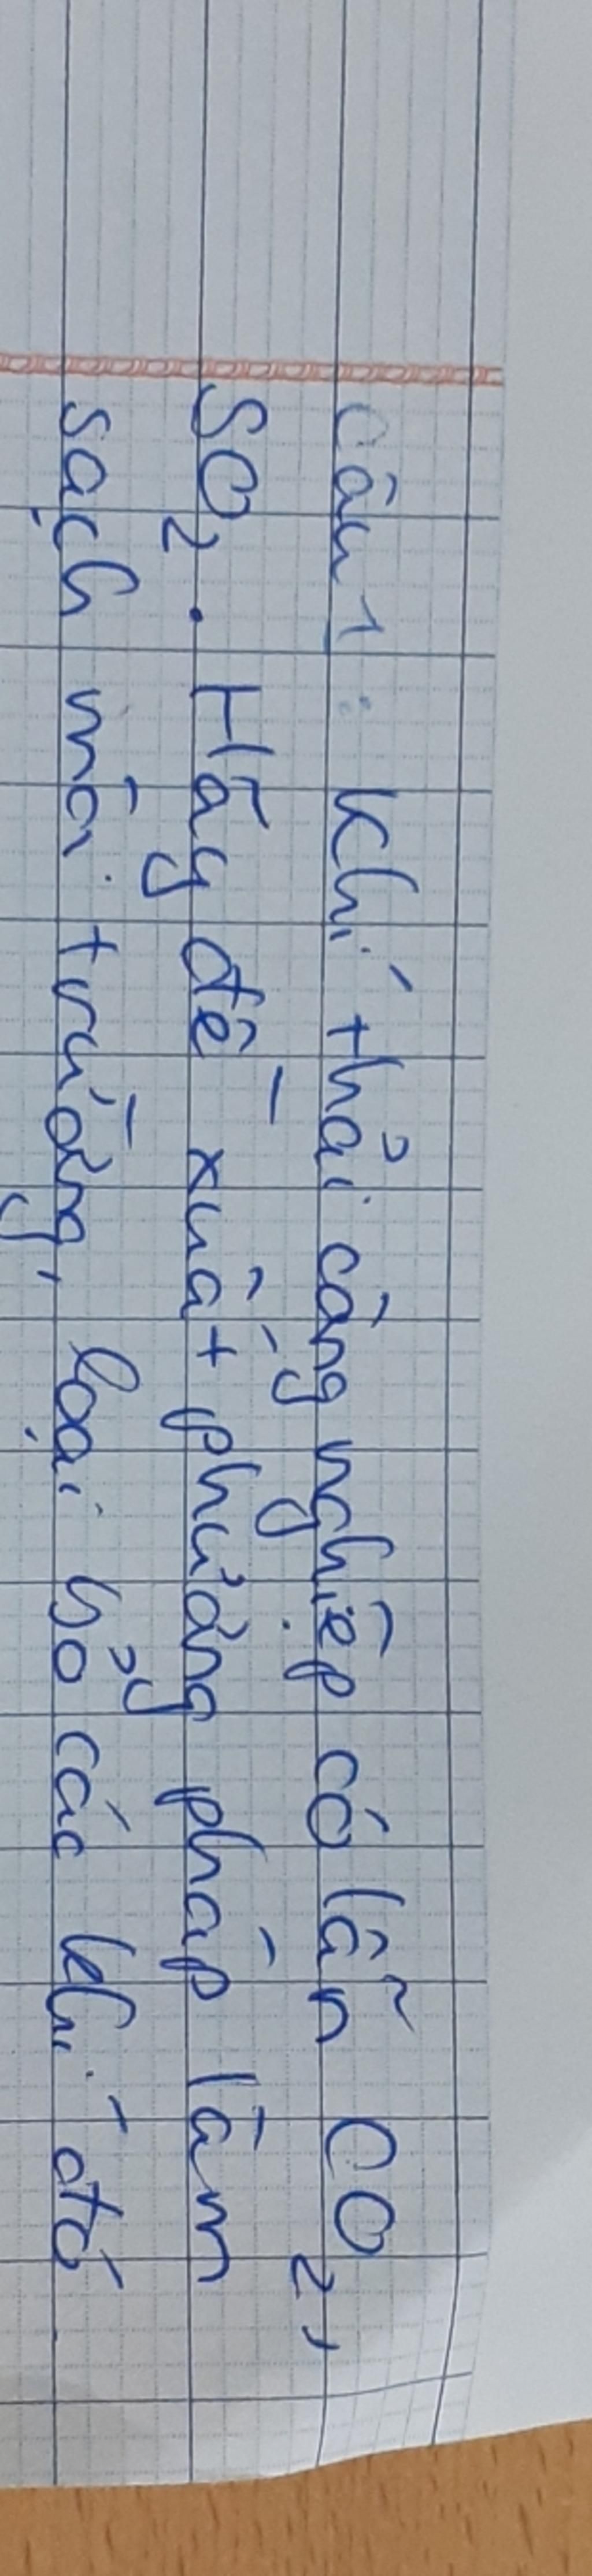 Câu 1: Khí thải công nghiệp có lẫn CO2,
SO2. Hãy đề xuất phương pháp làm
sạch môi trường, loại bỏ các khí đó.